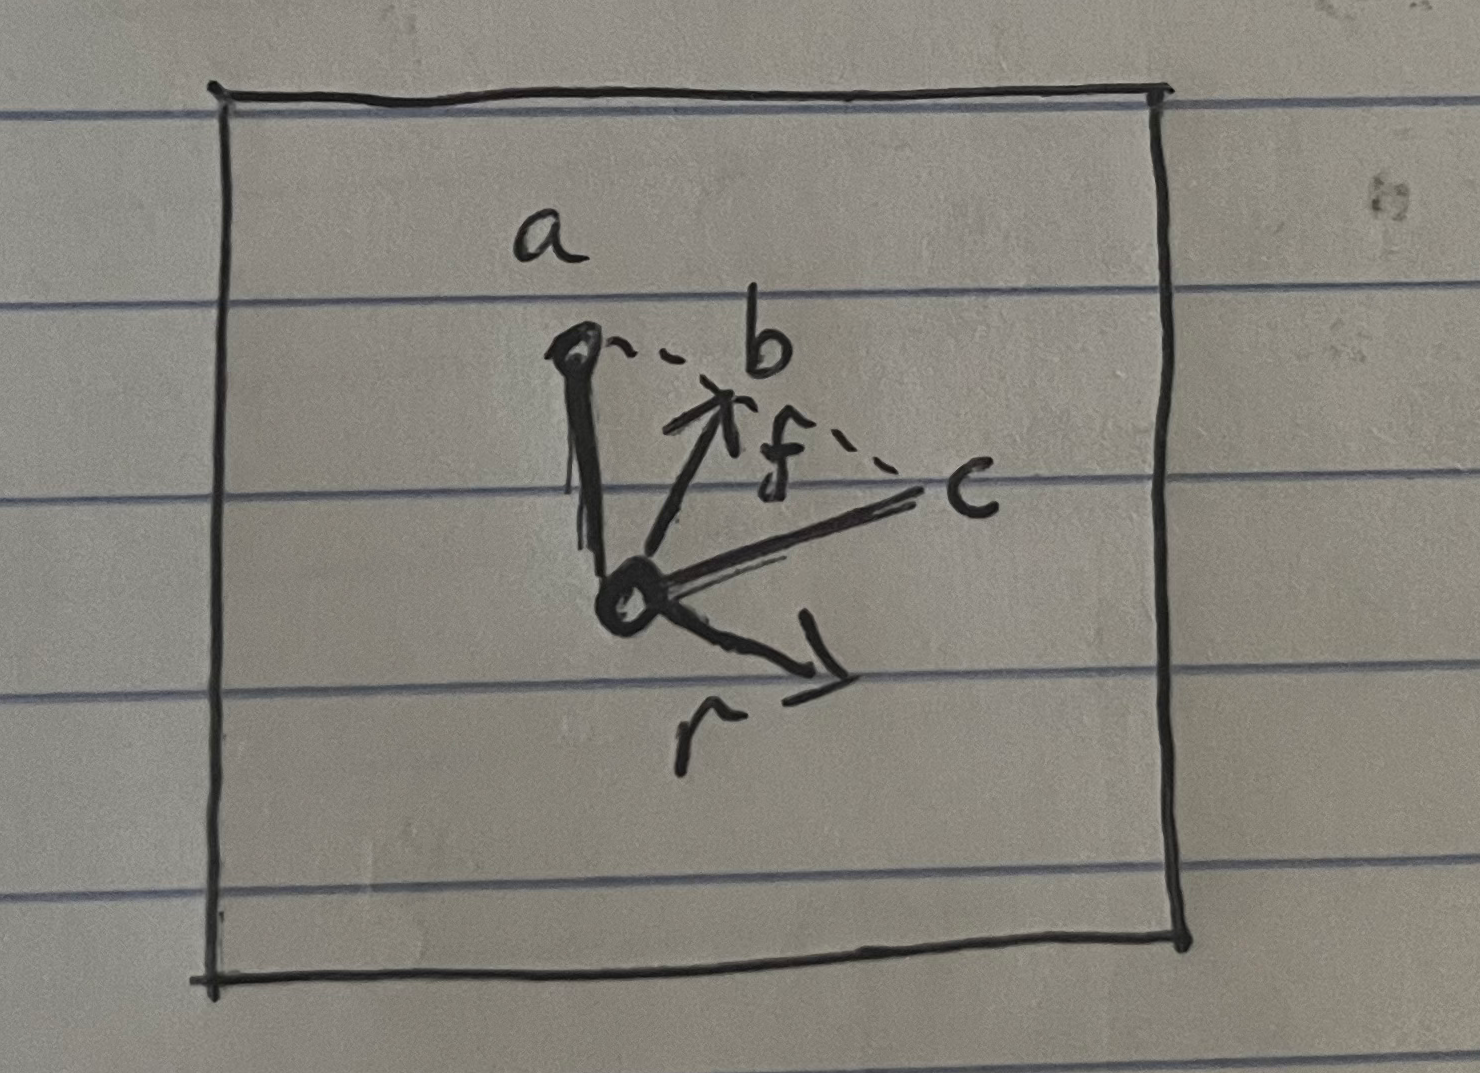 a
b
f
c
r